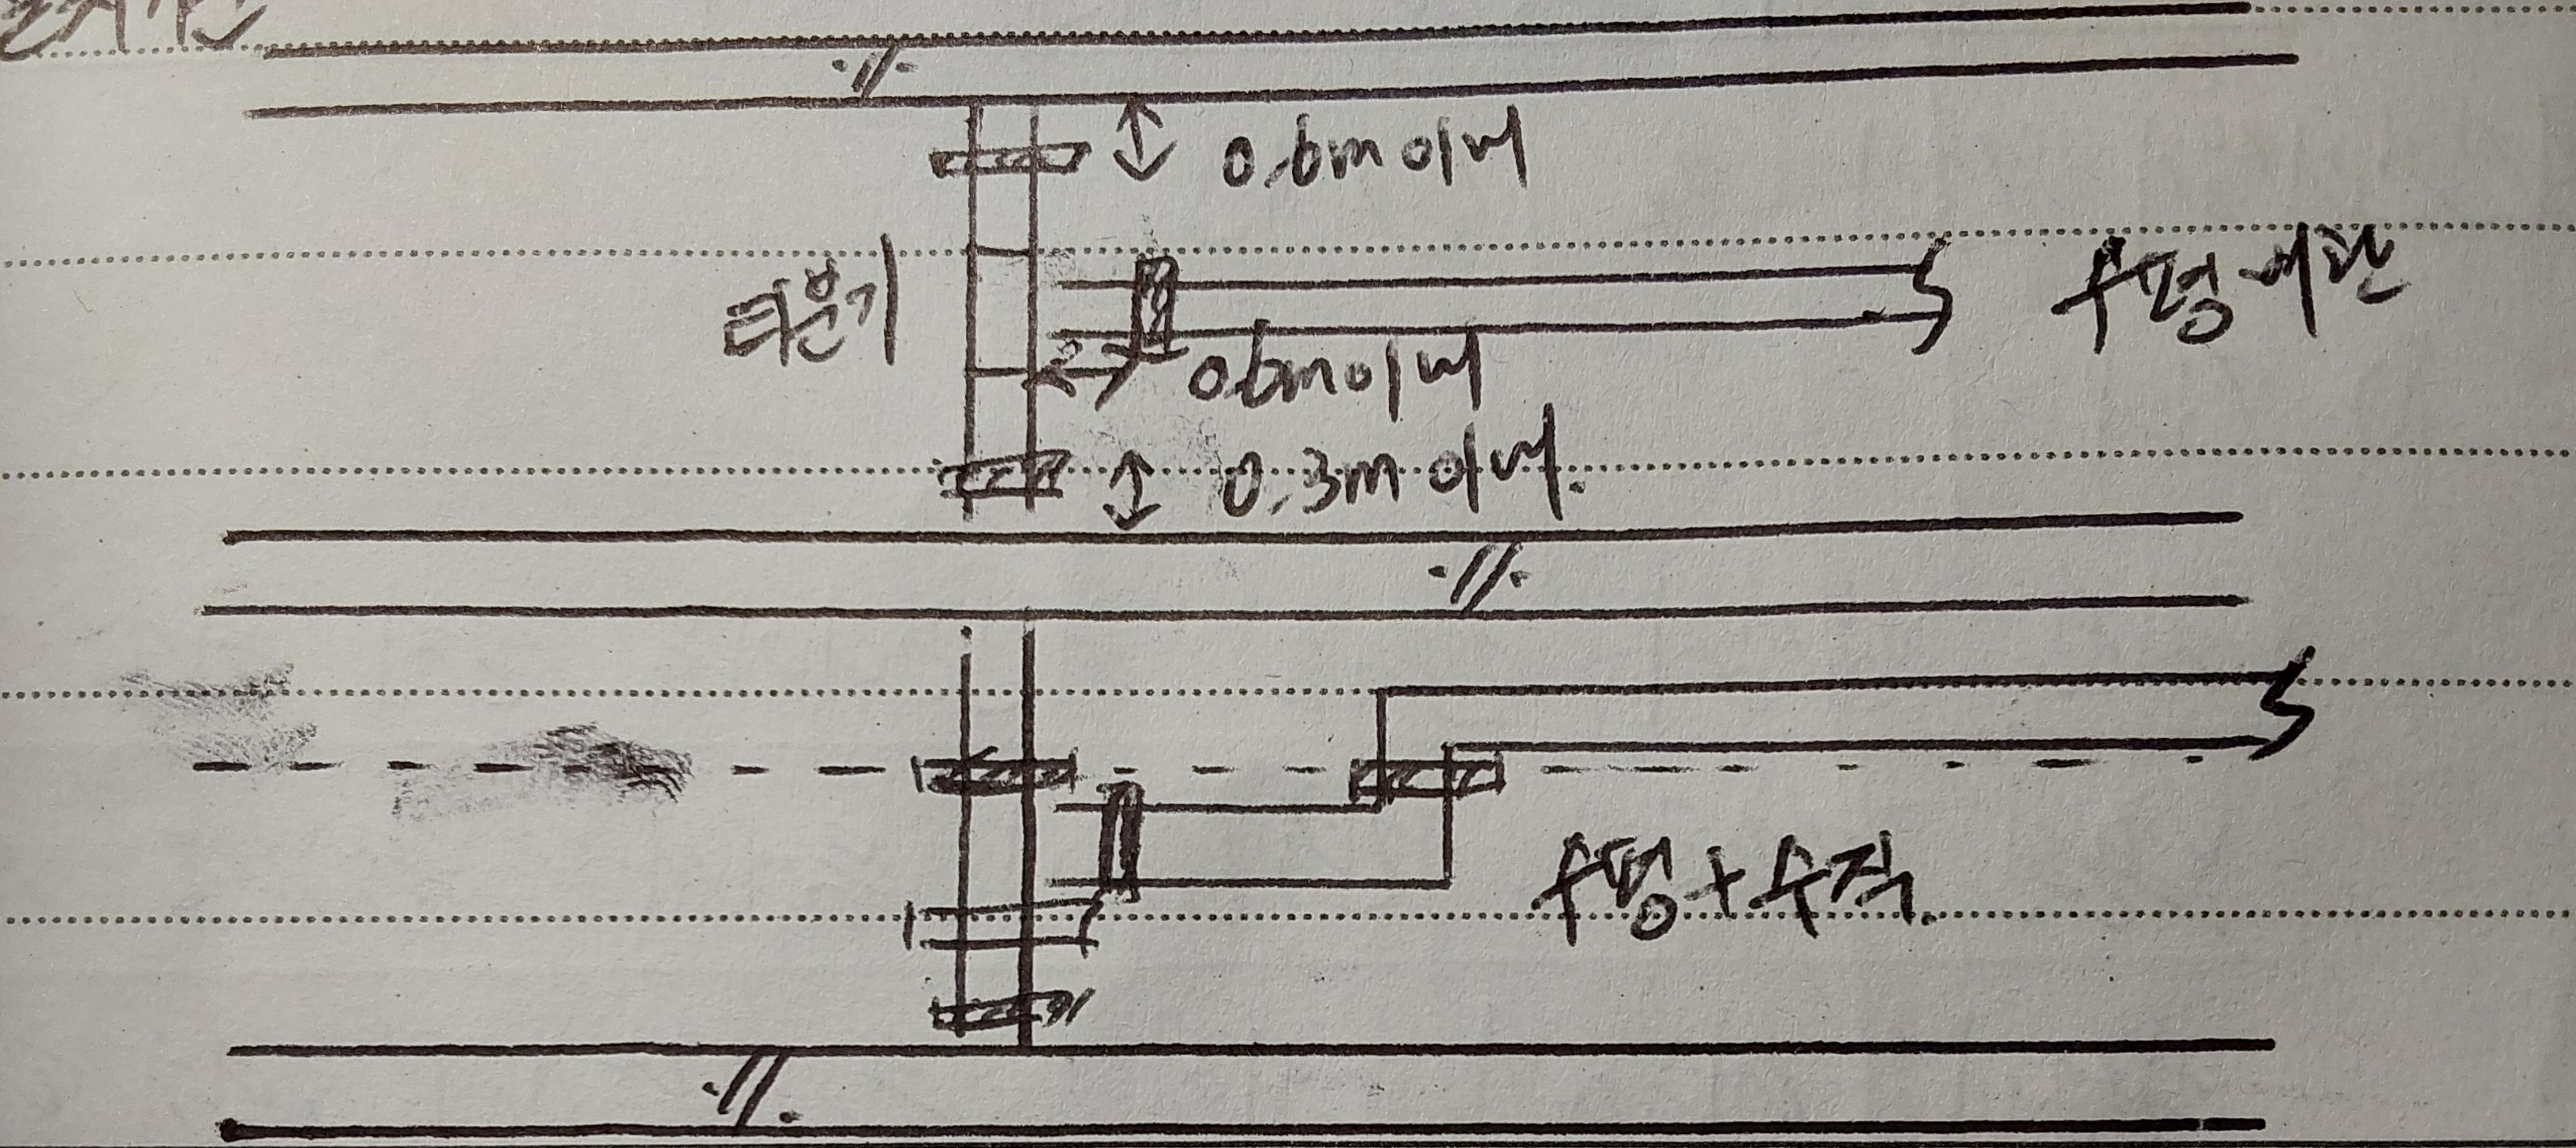 0.6m 이내
티분기
수평배관
0.6m 이내
0.3m 이내.
수평+수직.